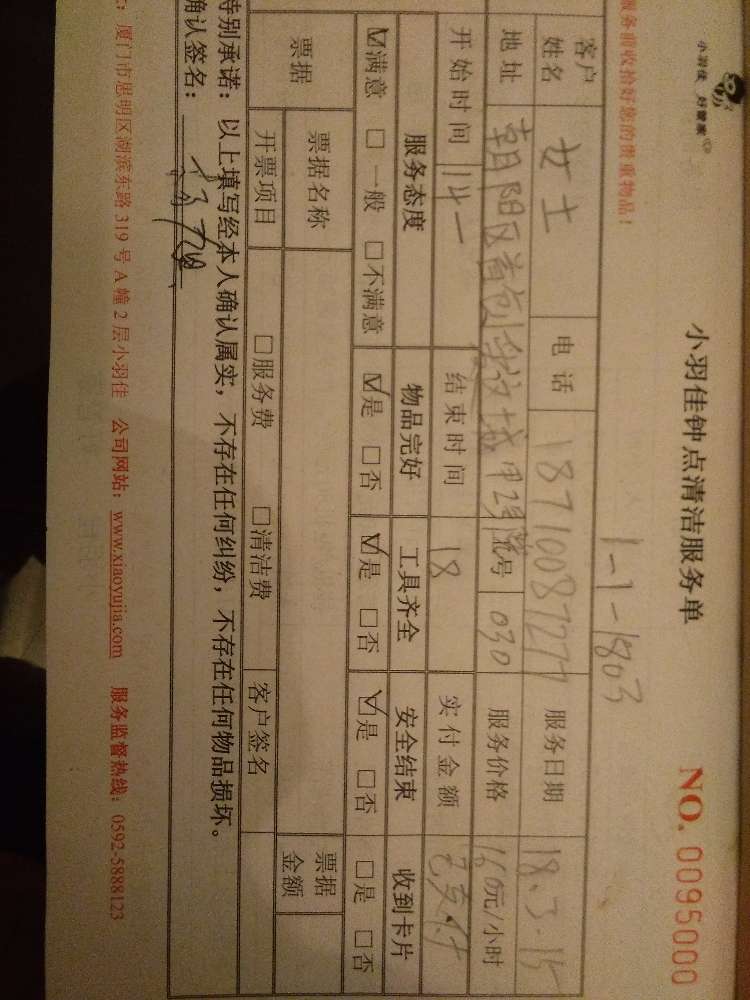 小羽佳 好管家
服务前收拾好您的贵重物品！
小羽佳钟点清洁服务单
NO. 0095000
1-1-1803
客户姓名 女士 电话 18710087277 服务日期 18.3.15
地址 朝阳区首创 城 甲2号 号 030 服务价格 160元/小时
开始时间 14- 结束时间 18 实付金额 已支付
服务态度 物品完好 工具齐全 安全结束 收到卡片
☑满意 □一般 □不满意 ☑是 □否 ☑是 □否 ☑是 □否 □是 □否
票据 票据名称 票据金额
开票项目 □服务费 □清洁费 客户签名
特别承诺：以上填写经本人确认属实，不存在任何纠纷，不存在任何物品损坏。
确认签名：
厦门市思明区湖滨东路 319 号 A 幢 2 层小羽佳 公司网站：www.xiaoyujia.com 服务监督热线：0592-5888123